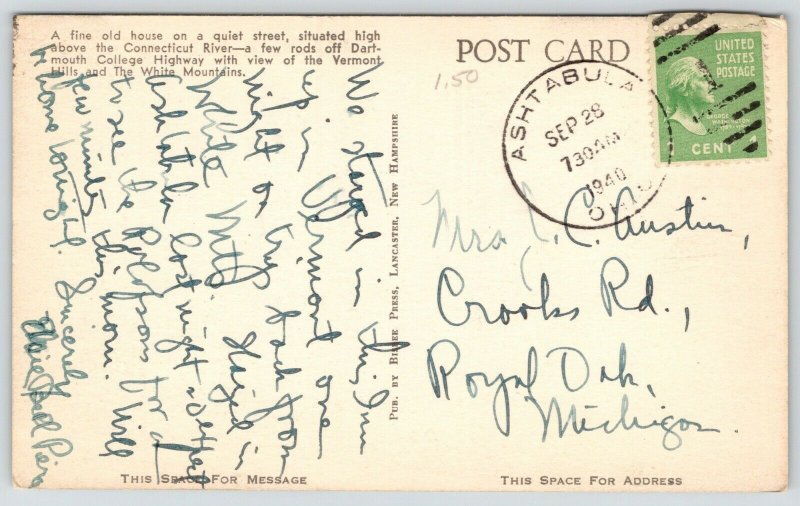 A fine old house on a quiet street, situated high
above the Connecticut River—a few rods off Dart-
mouth College Highway with view of the Vermont
Hills and The White Mountains.
POST CARD
1.50
ASHTABULA
SEP 28
730AM
1940
OHIO
UNITED
STATES
POSTAGE
GEORGE
WASHINGTON
CENT
We stayed in this Inn
up in Vermont one
night on trip back from
White Mts. Stayed in
Ashtabula last night & expect
to see the for a
few minutes this morn. Will
be home tonight. Sincerely
Elsie
PUB. BY BISBEE PRESS, LANCASTER, NEW HAMPSHIRE
Mrs. J. C. Austin,
Crooks Rd.,
Royal Oak,
Michigan.
THIS SPACE FOR MESSAGE
THIS SPACE FOR ADDRESS